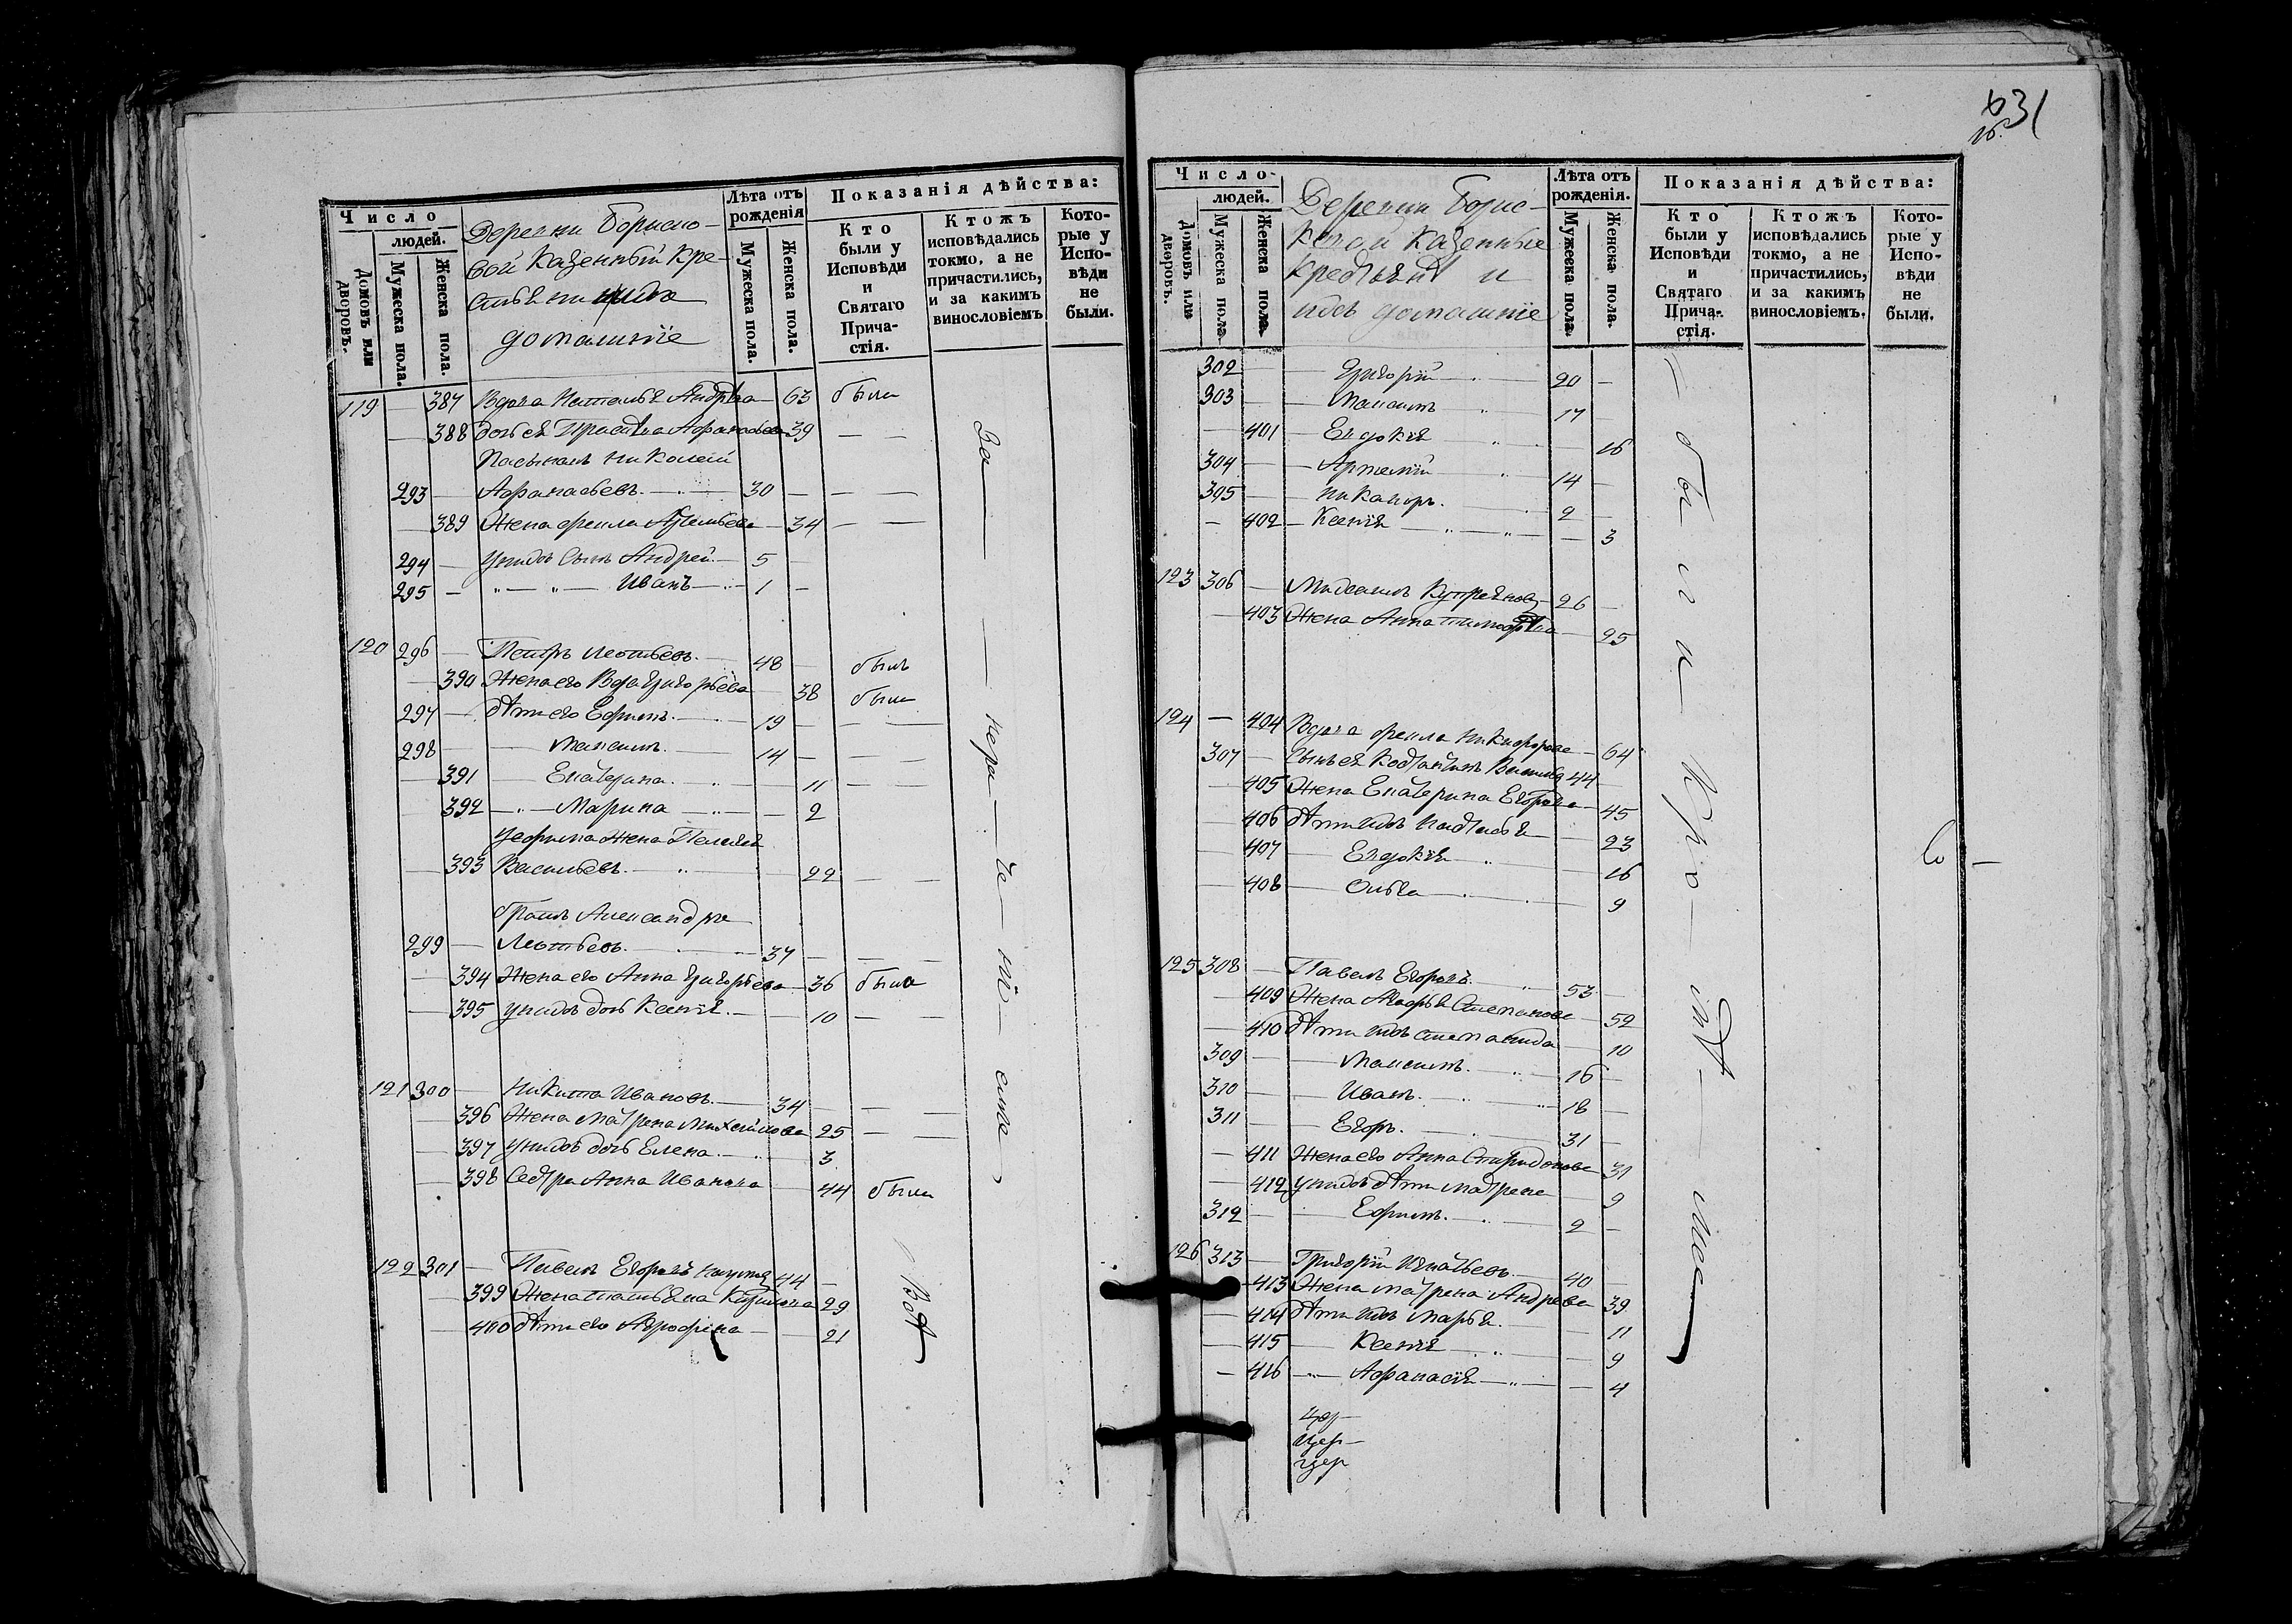 Число
людей.
Домовъ или дворовъ.
Мужеска пола.
Женска пола.
Деревни Борисо-
вой Казенный Кре-
стьяни ихъ
домашніе
Лѣта отъ рожденія
Мужеска пола.
Женска пола.
Показанія дѣйства:
Кто были у Исповѣди и Святаго Прича-стія.
Ктожъ исповѣдались токмо, а не причастились, и за какимъ винословіемъ
Кото-рые у Испо-вѣди не были.
119 — 387 Вдова Наталья Андрѣва — 63 были
— 388 дочь ея Прасковья Афанасьева 39 — —
Пасынокъ Николай
293 — Афанасьевъ. — 30 — — —
— 389 Жена Фекла — 34 — —
294 — у нихъ Сынъ Андрей — 5 —
295 — „ — „ — Иванъ — 1 —
120 296 — Петръ Леотьевъ. — 48 — былъ
— 390 Жена его Григорьева 38 были
297 — дѣти его Ефимъ. — 19 — — —
298 — Максимъ. 14 — — —
— 391 — Екатерина. — 11 — —
392 — „ — Марина — „ — 2
у Ефима Жена Пелагея
— 393 Васильевъ. — „ — 22 — —
братъ Александръ
299 — Леотьевъ. — 37 — — —
— 394 Жена его Анна Григорьева — 36 была
— 395 у нихъ дочь Ксенія. — 10 — —
121 300 — Никита Ивановъ. — 34 — — —
— 396 Жена Матрена Михайлова 25 — —
— 397 у нихъ дочь Елена. — 3
— 398 Сестра Анна Иванова 44 были
122 301 — Павелъ Егоровъ 44 —
— 399 Жена Татьяна 29
— 400 дѣти его Агрофена — 21
За — нера — че — ні — емъ
31
16.
Число
людей.
Домовъ или дворовъ.
Мужеска пола
Женска пола
Деревни Борис-
Казенные
Крестьянѣ и
ихъ домашніе
Лѣта отъ рожденія.
Мужеска пола.
Женска пола.
Показанія дѣйства:
Кто были у Исповѣди и Святаго Прича-стія.
Ктожъ исповѣдались токмо, а не причастились, и за какимъ винословіемъ.
Кото-рые у Испо-вѣди не были.
302 — Григорій — 20 —
303 — Максимъ „ 17 —
— 401 — Евдокія „ — 16
304 — Артемій „ 14 —
305 — Никаноръ. 2 —
— 402 — Ксенія — „ — „ — 3
123 306 — Купреяновъ — 26 —
— 403 Жена Анна — 25
124 — 404 Вдова Фекла Никифорова — 64
307 — Сынъ ея Костантинъ 44 —
— 405 Жена Екатерина Егорова — 45
— 406 дѣти ихъ Настасья — 23
— 407 — Евдокія — „ 16
— 408 — Ольга — 9
125 308 — Павелъ Егоровъ. 53 —
— 409 Жена Марфа Степанова — 52
— 410 дѣти ихъ Степанида 10
309 — Максимъ. 16 —
310 — Иванъ. 18 —
311 — Егоръ. 31 —
— 411 Жена его Анна Спиридонова 31
— 412 у нихъ дѣти Матрена 9
312 — Ефимъ. — „ 2 —
126 313 — Григорій Игнатьевъ. 40 —
— 413 Жена Матрена Андрева 39
— 414 дѣти ихъ Марья. — 11
— 415 — Ксенія — „ — 9
— 416 — „ — Афанасія — „ — 4
были